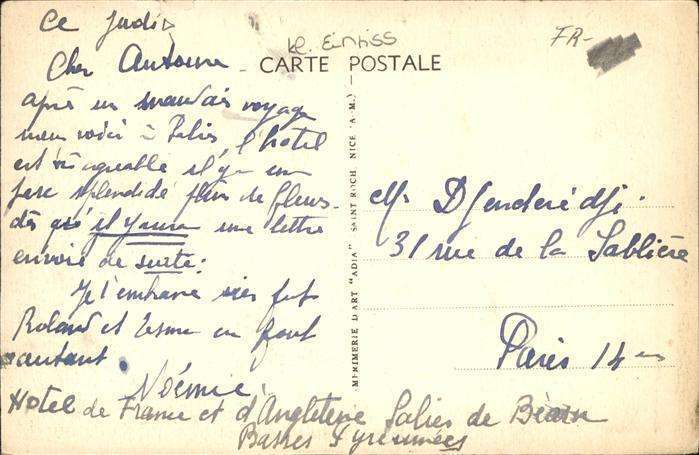 Ce Judi
Cher Antoine
CARTE POSTALE
FR-
après un mauvais voyage
nous voici à Salies, l'hotel
est très agreable il y a un
parc splendide plein de fleurs.
dès qu'il y aura une lettre
envoie de suite.
Je t'embrasse très fort
Roland et en font
autant.
Noémie
Hotel de France et d'Angleterre Salies de Béarn
Basses Pyrennées
IMPRIMERIE D'ART "ADIA" SAINT ROCH, NICE (A.-M.)
Mr Djenderedji.
31 rue de la Sablière
Paris 14